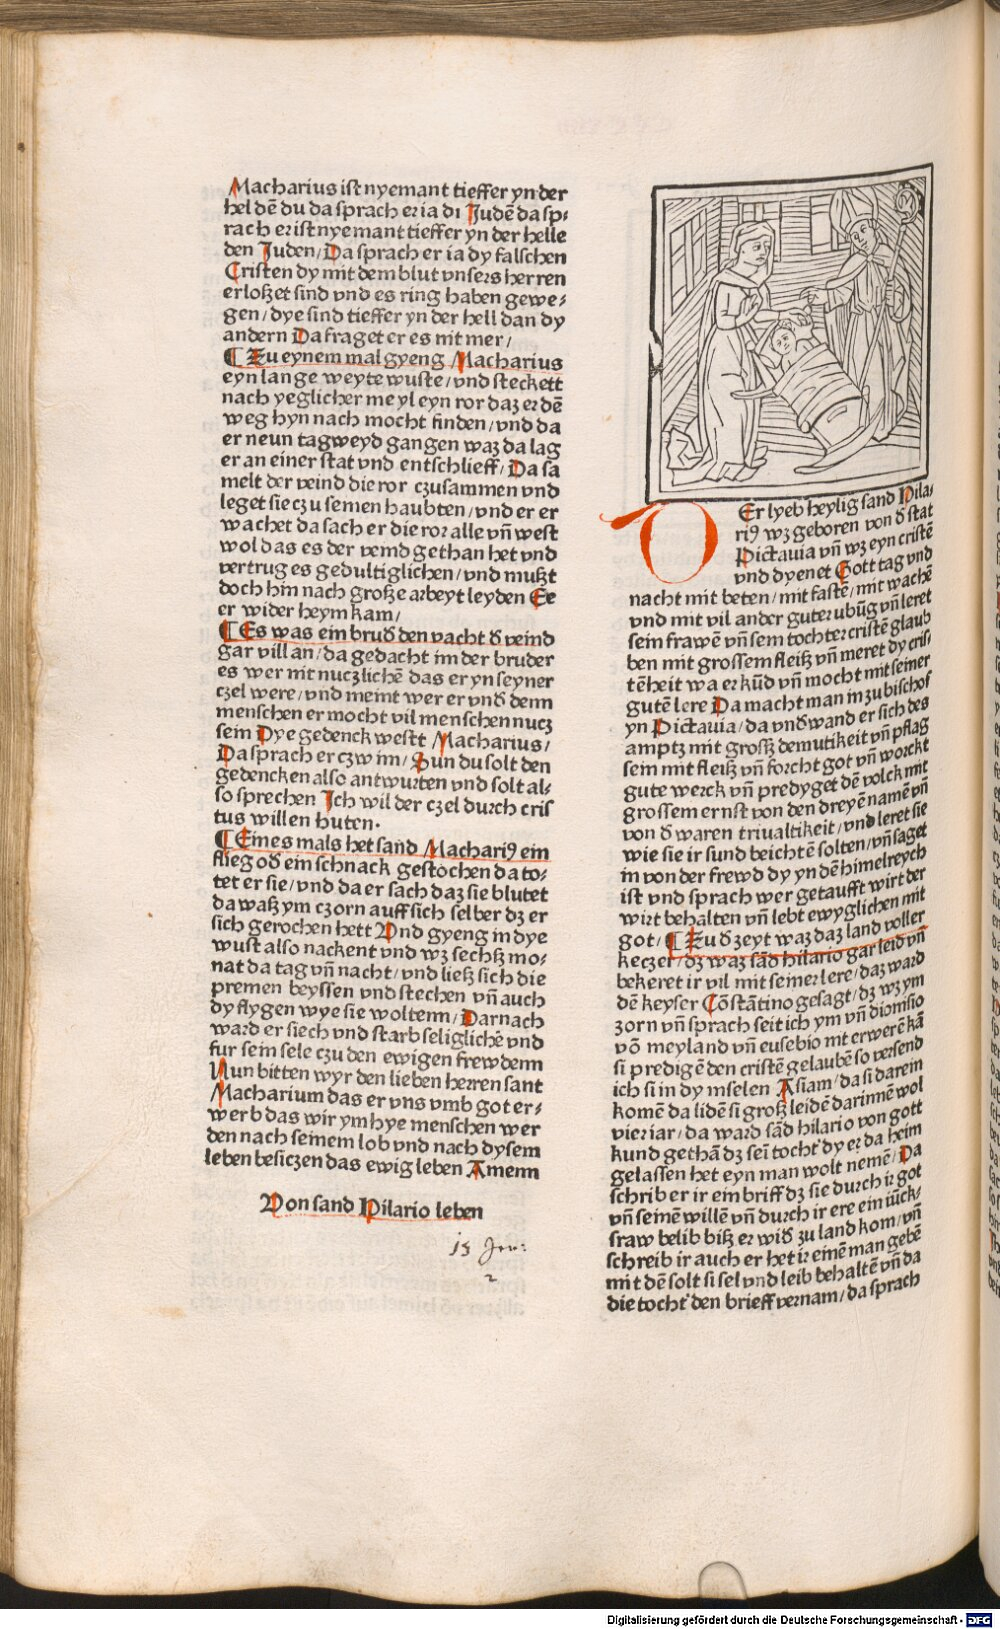 Macharius ist nyemant tieffer yn der
hel dẽ du da sprach er ia di Judẽ da sp-
rach er ist nyemant tieffer yn der helle
den Juden/ Da sprach er ia dy falschen
Cristen dy mit dem blut vnsers herren
erloßet sind vnd es ring haben gewe-
gen/ dye sind tieffer yn der hell dan dy
andern Da fraget er es nit mer/
¶ Zu eynem mal gyeng Macharius
eyn lange weyte wuste/ vnd steckett
nach yeglicher meyl eyn ror daz er dẽ
weg hyn nach mocht finden/ vnd da
er neun tagweyd gangen waz da lag
er an einer stat vnd entschlieff/ Da sa
melt der veind die ror czusammen vnd
leget sie czu seinen haubten/ vnd er er
wachet da sach er die ror alle vñ west
wol das es der veind gethan het vnd
vertrug es gedultiglichen/ vnd mußt
doch hin nach große arbeyt leyden Ee
er wider heym kam/
¶ Es was ein brud̕ den vacht d̕ veind
gar vill an/ da gedacht im der bruder
es wer nit nuczlichẽ das er yn seyner
czel were/ vnd meint wer er vnd̕ denn
menschen er mocht vil menschen nucz
sein Dye gedenck westt Macharius/
Da sprach er czw im/ Sun du solt den
gedencken also antwurten vnd solt al-
so sprechen Ich wil der czel durch cris
tus willen huten.
¶ Eines mals het sand Machariꝰ ein
flieg od̕ ein schnack gestochen da to-
tet er sie/ vnd da er sach daz sie blutet
da waß ym czorn auff sich selber dz er
sich gerochen hett Vnd gyeng in dye
wust also nackent vnd wz sechß mo-
nat da tag vñ nacht/ vnd ließ sich die
premen beyssen vnd stechen vñ auch
dy flygen wye sie woltenn/ Darnach
ward er siech vnd starb seliglichẽ vnd
fur sein sele czu den ewigen frewdenn
Nun bitten wyr den lieben herren sant
Macharium das er vns vmb got er-
werb das wir ym hye menschen wer
den nach seinem lob vnd nach dysem
leben besiczen das ewig leben Amenn
Von sand Hilario leben
13 Jen:
2
DEr lyeb heylig sand Hila-
riꝰ wz geboren von d̕ stat
Pictauia vñ wz eyn cristẽ
vnd dyenet Gott tag vnd
nacht mit beten/ mit fastẽ/ mit wachẽ
vnd mit vil ander guter ubũg vñ leret
sein frawẽ vñ sein tochter cristẽ glaub
ben mit grossem fleiß vñ meret dy cris
tẽheit wa er kũd vñ mocht mit seiner
gutẽ lere Da macht man in zu bischof
yn Pictauia/ da vnd̕wand er sich des
amptz mit grosz demutikeit vñ pflag
sein mit fleiß vñ forcht got vñ worckt
gute werck vñ predyget dẽ volck mit
grossem ernst von den dreyẽ namẽ vñ
von d̕ waren triualtikeit/ vnd leret sie
wie sie ir sund beichtẽ solten/ vñ saget
in von der frewd dy yn dẽ himelreych
ist vnd sprach wer getaufft wirt der
wirt behalten vñ lebt ewyglichen mit
got/ ¶ Zu d̕ zeyt waz daz land voller
keczer/ dz waz sãd hilario gar leid vñ
bekeret ir vil mit seiner lere/ daz ward
dẽ keyser Cõstãtino gesagt/ dz wz ym
zorn vñ sprach seit ich ym vñ dionisio
võ meyland vñ eusebio nit erwerẽ kã
si predigẽ den cristẽ gelaubẽ so versend
ich si in dy inselen Asiam/ da si darein
komẽ da lidẽ si groß leidẽ darinnẽ wol
vier iar/ da ward sãd hilario von gott
kund gethã dz sei tocht̕ dy er da heim
gelassen het eyn man wolt nemẽ/ Da
schrib er ir ein briff dz sie durch ir got
vñ seinẽ willẽ vñ durch ir ere ein iũck-
fraw belib biß er wid̕ zu land kom/ vñ
schreib ir auch er het ir einẽ man gebẽ
mit dẽ solt si sel vnd leib behaltẽ vñ da
die tocht̕ den brieff vernam/ da sprach
Digitalisierung gefördert durch die Deutsche Forschungsgemeinschaft - DFG